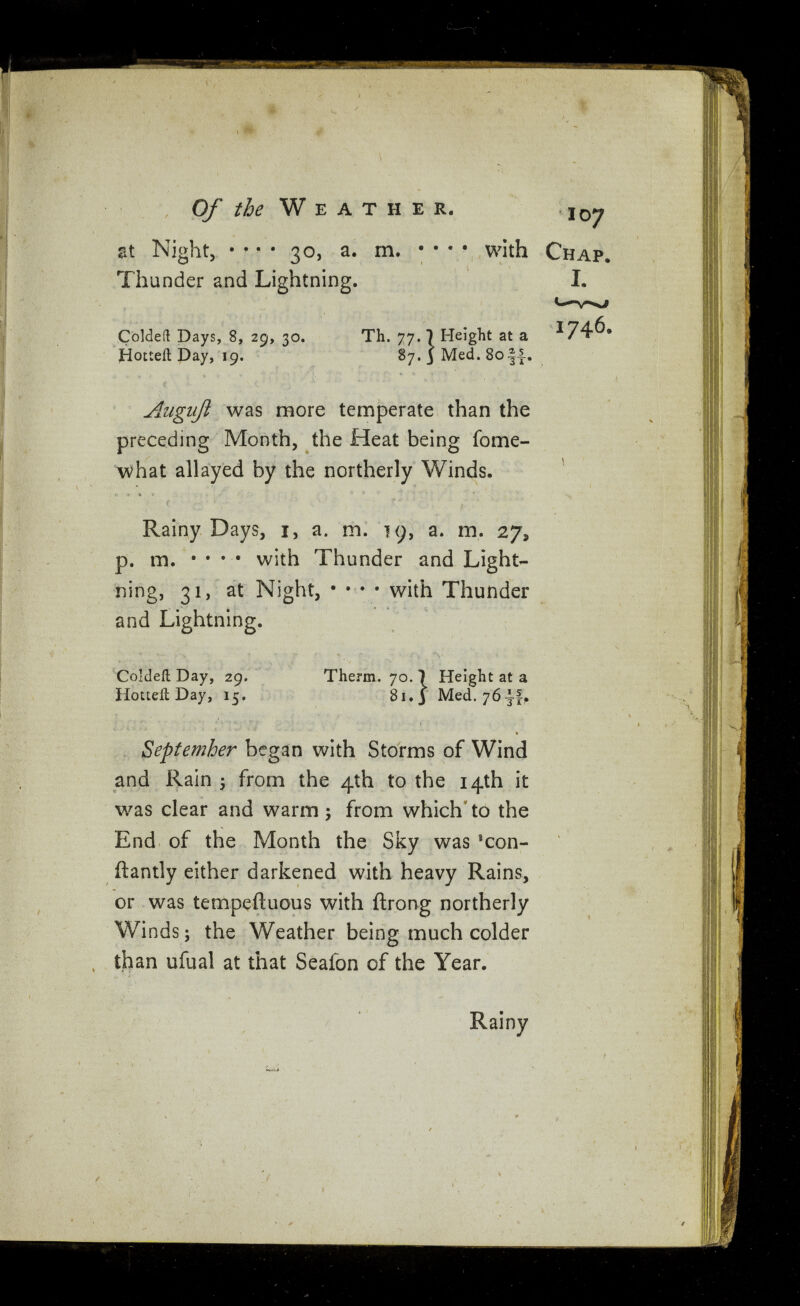 Of the WEATHER. 107
at Night, • • • • 30, a. m. • • • • with CHAP.
Thunder and Lightning. I.
1746.
Coldeſt Days, 8, 29, 30. Th. 77. } Height at a
Hotteſt Day, 19. 87. } Med. 80 25/31.
Auguſt was more temperate than the
preceding Month, the Heat being ſome-
what allayed by the northerly Winds.
Rainy Days, 1, a. m. 19, a. m. 27,
p. m. • • • • with Thunder and Light-
ning, 31, at Night, • • • • with Thunder
and Lightning.
Coldeſt Day, 29. Therm. 70. } Height at a
Hotteſt Day, 15. 81. } Med. 76
September began with Storms of Wind
and Rain ; from the 4th to the 14th it
was clear and warm ; from which to the
End of the Month the Sky was con-
ſtantly either darkened with heavy Rains,
or was tempeſtuous with ſtrong northerly
Winds ; the Weather being much colder
than uſual at that Seaſon of the Year.
Rainy